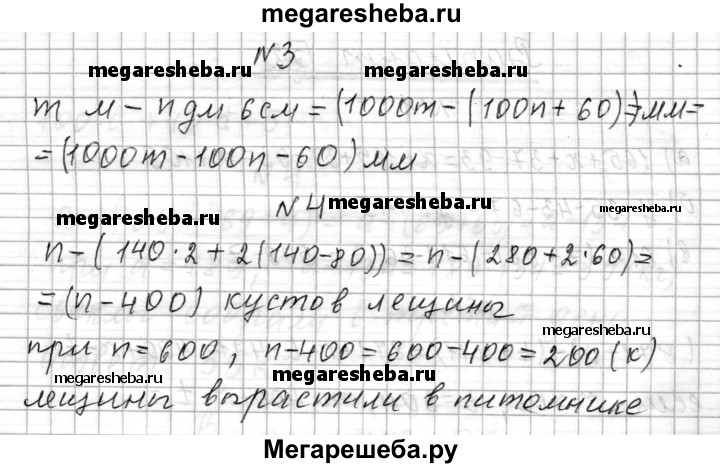 megaresheba.ru
N 3
megaresheba.ru megaresheba.ru
m м - n дм 6 см = (1000m - (100n + 60)) мм =
= (1000m - 100n - 60) мм
N 4 megaresheba.ru megaresheba.ru
megaresheba.ru
n - (140 · 2 + 2(140-80)) = n - (280 + 2·60) =
= (n - 400) кустов лещины
megaresheba.ru
при n = 600, n - 400 = 600 - 400 = 200 (к)
megaresheba.ru megaresheba.ru
лещины вырастили в питомнике
Мегарешеба.ру